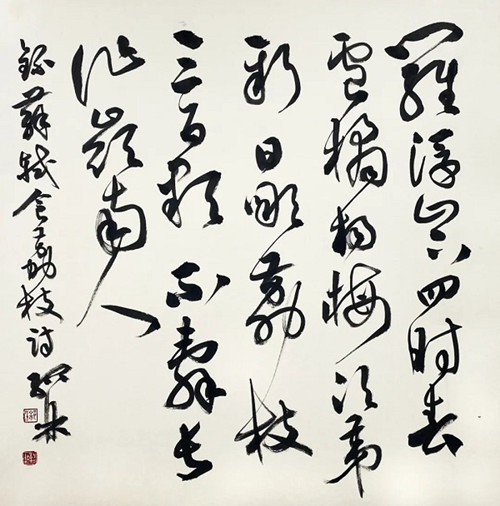 羅浮山下四时春
盧橘杨梅次第
新日啖荔枝
三百颗不辭长
作嶺南人
錄蘇軾食荔枝诗